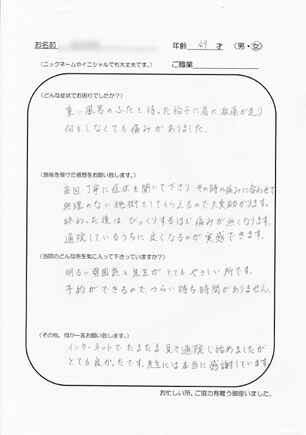 お名前 年齢 49 才 (男・女)
(ニックネームやイニシャルでも大丈夫です。) ご職業
(どんな症状でお困りでしたか?)
重い風呂のふたを持った拍子に肩に激痛が走り
何もしなくても痛みがありました。
(施術を受けた感想をお願い致します。)
毎回丁寧に症状を聞いて下さり、その時の痛みに合わせて
無理のない施術をしてもらえるので大変助かります。
終わった後は、びっくりするほど痛みが無くなります。
通院しているうちに良くなるのが実感できます。
(当院のどんな所を気に入って下さっていますか?)
明るい雰囲気と先生がとてもやさしい所です。
予約ができるので、つらい待ち時間がありません。
(その他、何か一言お願い致します。)
インターネットでたまたま見て通院し始めましたが
とても良かったです。先生には本当に感謝しています。
お忙しい所、ご協力有難う御座いました。